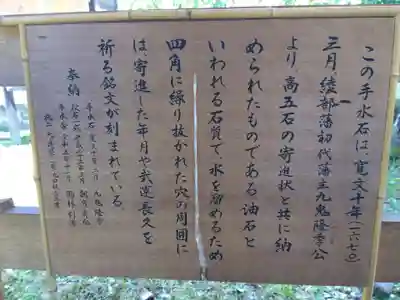 この手水石は、寛文十年(一六七〇)
三月綾部藩初代藩主九鬼隆季公
より、高五石の寄進状と共に納
められたものである油石と
いわれる石質で、水を溜めるため
四角に繰り抜かれた穴の周囲に
は、寄進した年月や武運長久を
祈る銘文が刻まれている。
奉納
手水石 九鬼隆季